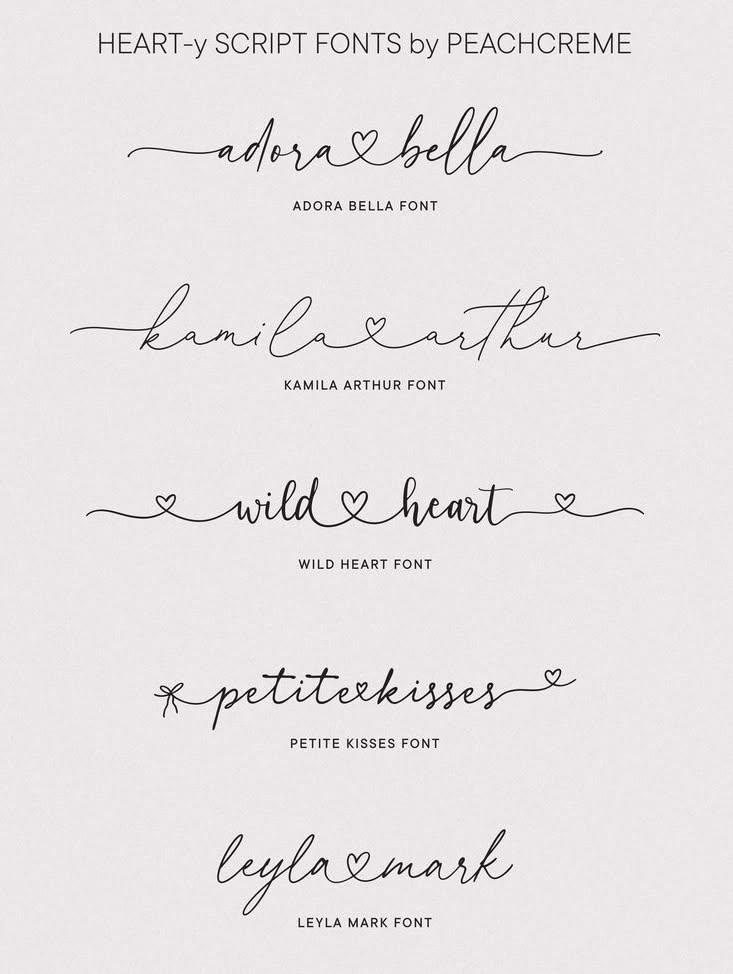 HEART-y SCRIPT FONTS by PEACHCREME
adora bella
ADORA BELLA FONT
kamila arthur
KAMILA ARTHUR FONT
wild heart
WILD HEART FONT
petite kisses
PETITE KISSES FONT
leyla mark
LEYLA MARK FONT